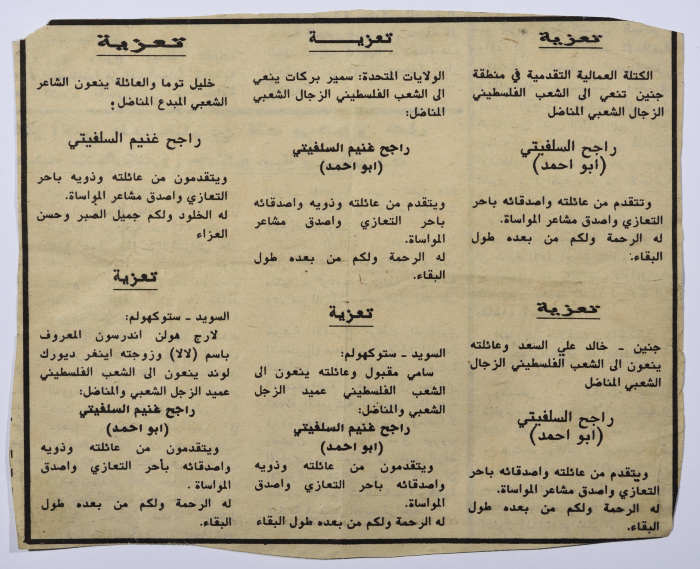 تعزية
الكتلة العمالية التقدمية في منطقة
جنين تنعي الى الشعب الفلسطيني
الزجال الشعبي المناضل
راجح السلفيتي
(ابو احمد)
وتتقدم من عائلته واصدقائه باحر
التعازي واصدق مشاعر المواساة.
له الرحمة ولكم من بعده طول
البقاء.
تعزية
جنين - خالد علي السعد وعائلته
ينعون الى الشعب الفلسطيني الزجال
الشعبي المناضل
راجح السلفيتي
(ابو احمد)
ويتقدم من عائلته واصدقائه باحر
التعازي واصدق مشاعر المواساة.
له الرحمة ولكم من بعده طول
البقاء.
تعزيـــة
الولايات المتحدة: سمير بركات ينعي
الى الشعب الفلسطيني الزجال الشعبي
المناضل:
راجح غنيم السلفيتي
(ابو احمد)
ويتقدم من عائلته وذويه واصدقائه
باحر التعازي واصدق مشاعر
المواساة.
له الرحمة ولكم من بعده طول
البقاء.
تعزية
السويد - ستوكهولم:
سامي مقبول وعائلته ينعون الى
الشعب الفلسطيني عميد الزجل
الشعبي والمناضل:
راجح غنيم السلفيتي
(ابو احمد)
ويتقدمون من عائلته وذويه
واصدقائه باحر التعازي واصدق
المواساة.
له الرحمة ولكم من بعده طول البقاء
تعزية
خليل توما والعائلة ينعون الشاعر
الشعبي المبدع المناضل:
راجح غنيم السلفيتي
ويتقدمون من عائلته وذويه باحر
التعازي واصدق مشاعر المواساة.
له الخلود ولكم جميل الصبر وحسن
العزاء
تعزية
السويد - ستوكهولم:
لارج هولن اندرسون المعروف
باسم (لالا) وزوجته اينغر ديورك
لوند ينعون الى الشعب الفلسطيني
عميد الزجل الشعبي والمناضل:
راجح غنيم السلفيتي
(ابو احمد)
ويتقدمون من عائلته وذويه
واصدقائه بأحر التعازي واصدق
المواساة .
له الرحمة ولكم من بعده طول
البقاء.